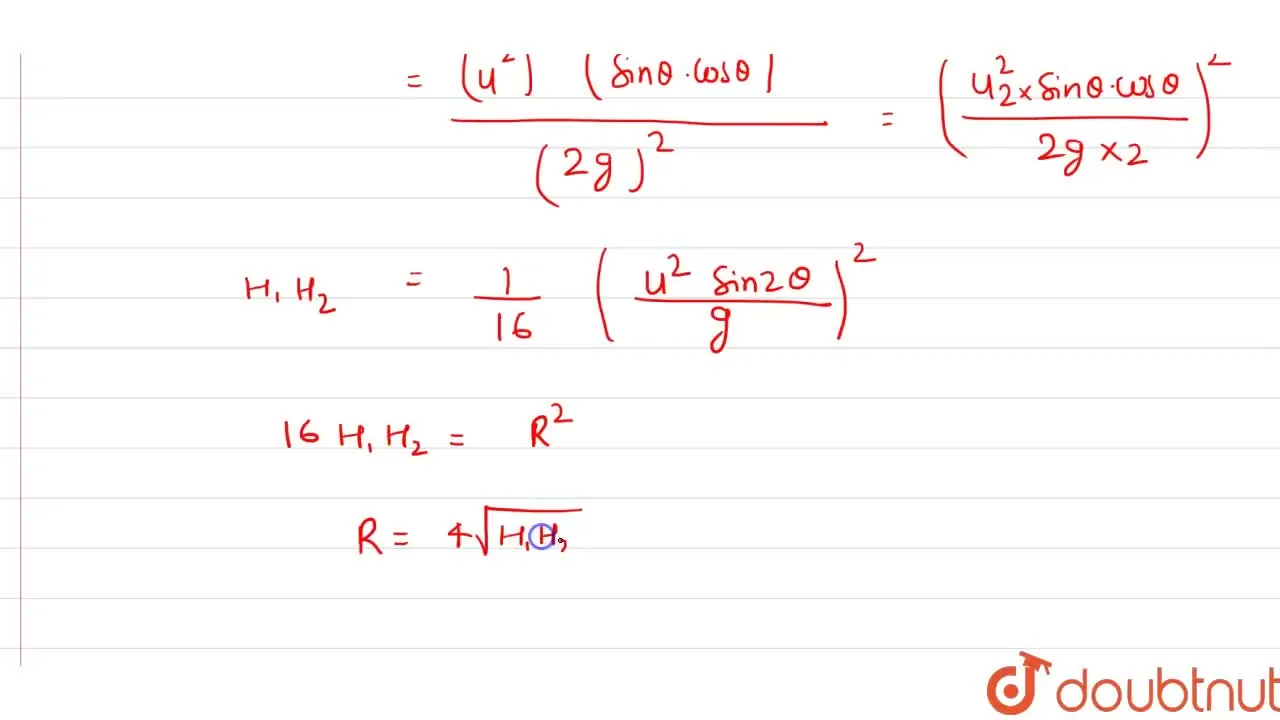 = (u²) (Sinθ·Cosθ) / (2g)² = (u²2×Sinθ·Cosθ / 2g×2)²
H₁H₂ = 1/16 (u² Sin2θ / g)²
16 H₁H₂ = R²
R = 4√H₁H₂
doubtnut